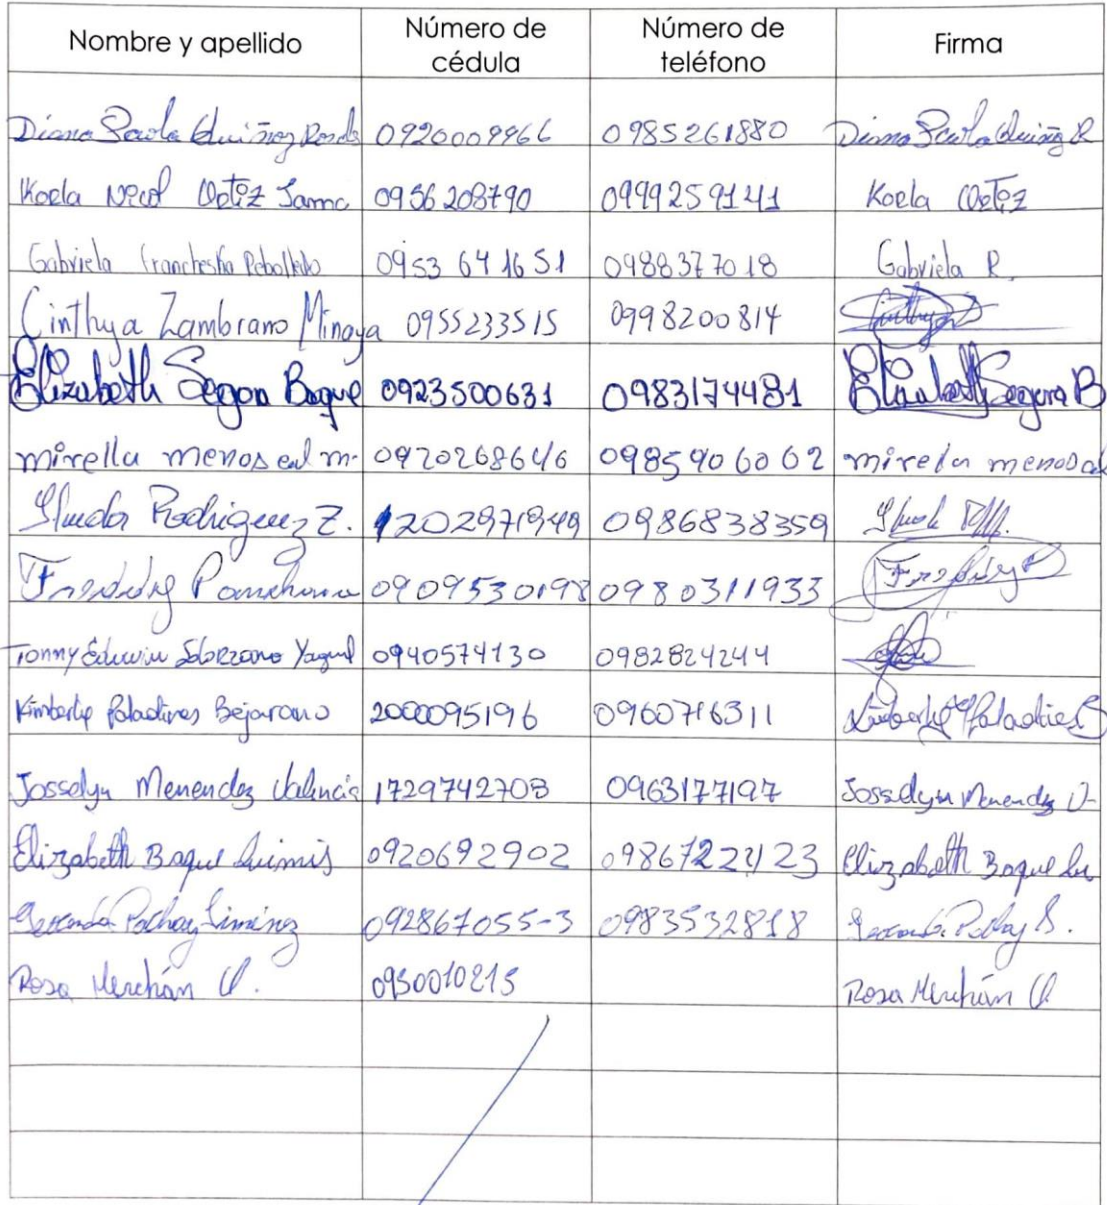 Nombre y apellido Número de cédula Número de teléfono Firma
Diana Paola Quiñoz 0920009966 0985261880 Diana Paola Quiñoz R
Koela Nicol Ortiz Jama 0956208790 0999259141 Koela Ortiz
Gabriela Francheska Rebolledo 0953641651 0988377018 Gabriela R.
Cinthya Zambrano Minaya 0955233515 0998200814 Cinthya
Elizabeth Segon Baque 0923500631 0983174481 Elizabeth Segura B
mirella menoscal m. 0920268646 0985906062 mirella menoscal
Rodriguez Z. 1202971949 0986838359
Freddy Panchana 0909530198 0980311933 Freddy P
Tonny Edwin Solorzano Yagual 0940574130 0982824244
Kimberly Paladines Bejarano 2000095196 0960716311 Kimberly Paladines B
Josselyn Menendez Valencia 1729742708 0963177197 Josselyn Menendez V-
Elizabeth Baque Quimis 0920692902 Elizabeth Baque Qu
Pachay Jiménez 092867055-3 0983532818
Rosa Merchán V. 0950010215 Rosa Merchán V.